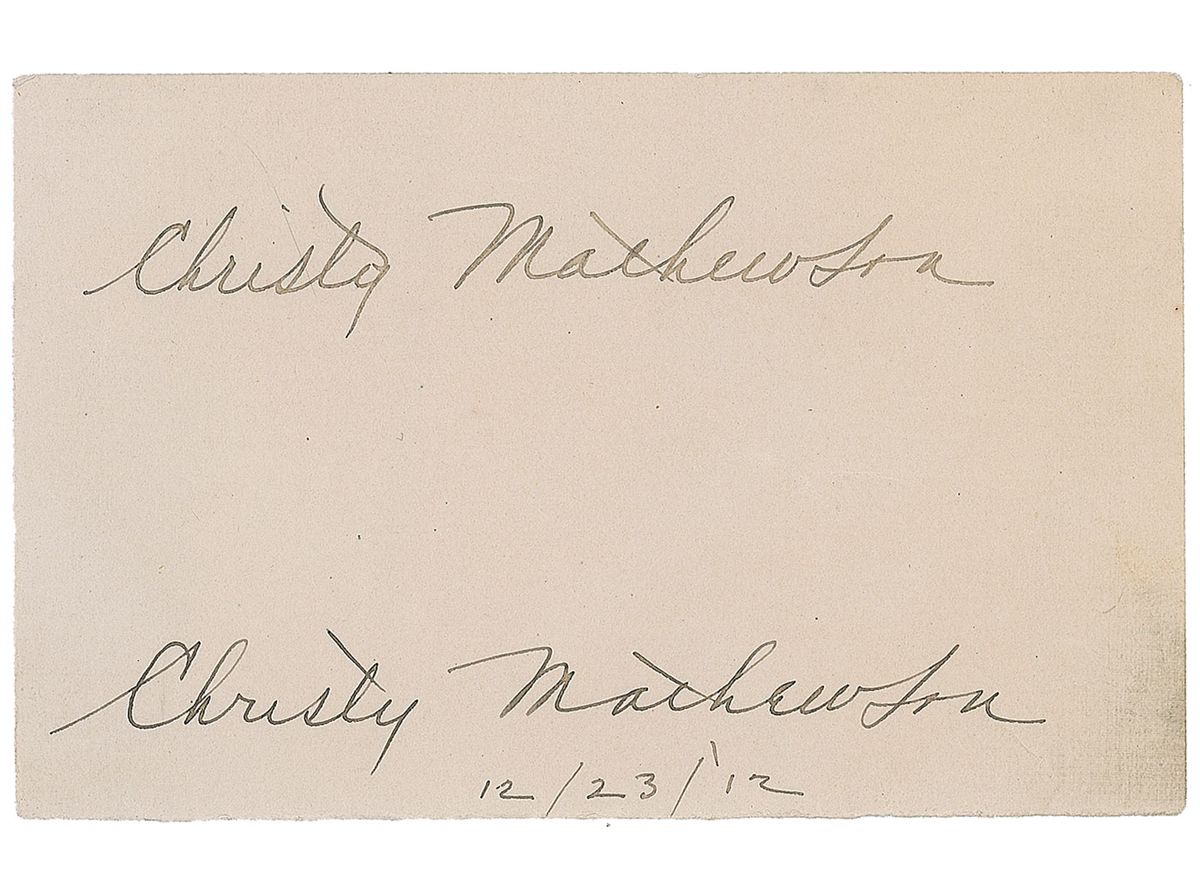 Christy Mathewson
Christy Mathewson
12/23/'12